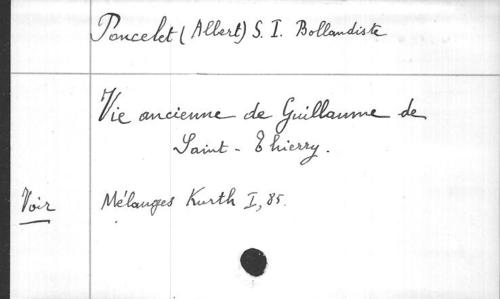 Poncelet (Albert) S. I. Bollandiste
Vie ancienne de Guillaume de
Saint-Thierry.
Voir Mélanges Kurth I, 85.